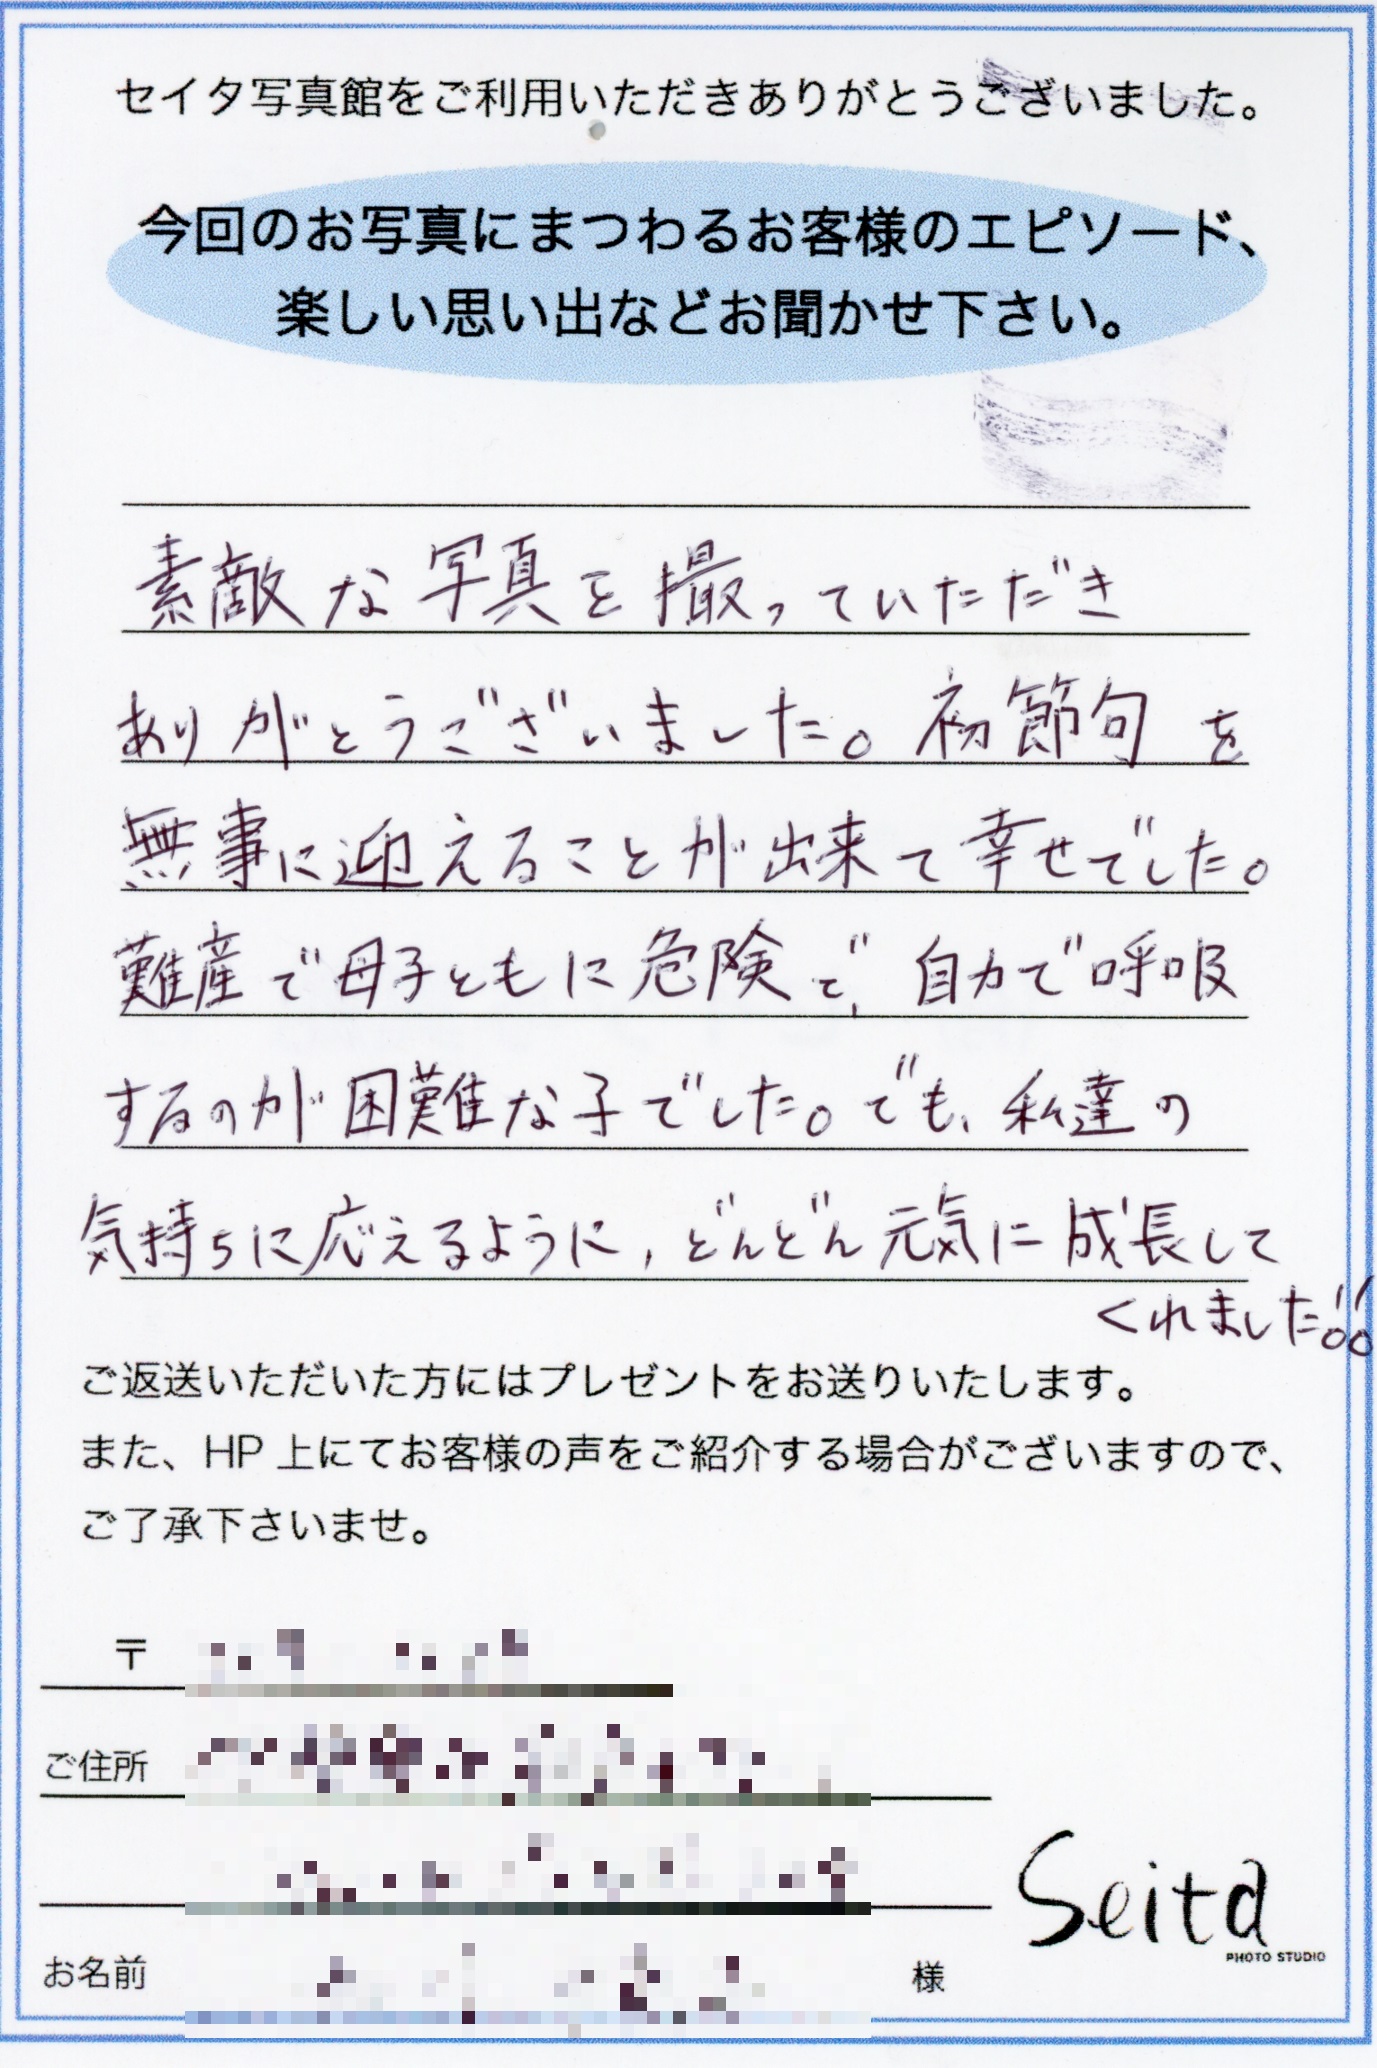 セイタ写真館をご利用いただきありがとうございました。
今回のお写真にまつわるお客様のエピソード、
楽しい思い出などお聞かせ下さい。
素敵な写真を撮っていただき
ありがとうございました。初節句を
無事に迎えることが出来て幸せでした。
難産で母子ともに危険で、自力で呼吸
するのが困難な子でした。でも、私達の
気持ちに応えるように、どんどん元気に成長して
くれました!!
ご返送いただいた方にはプレゼントをお送りいたします。
また、HP上にてお客様の声をご紹介する場合がございますので、
ご了承下さいませ。
〒
ご住所
お名前 様
Seita
PHOTO STUDIO